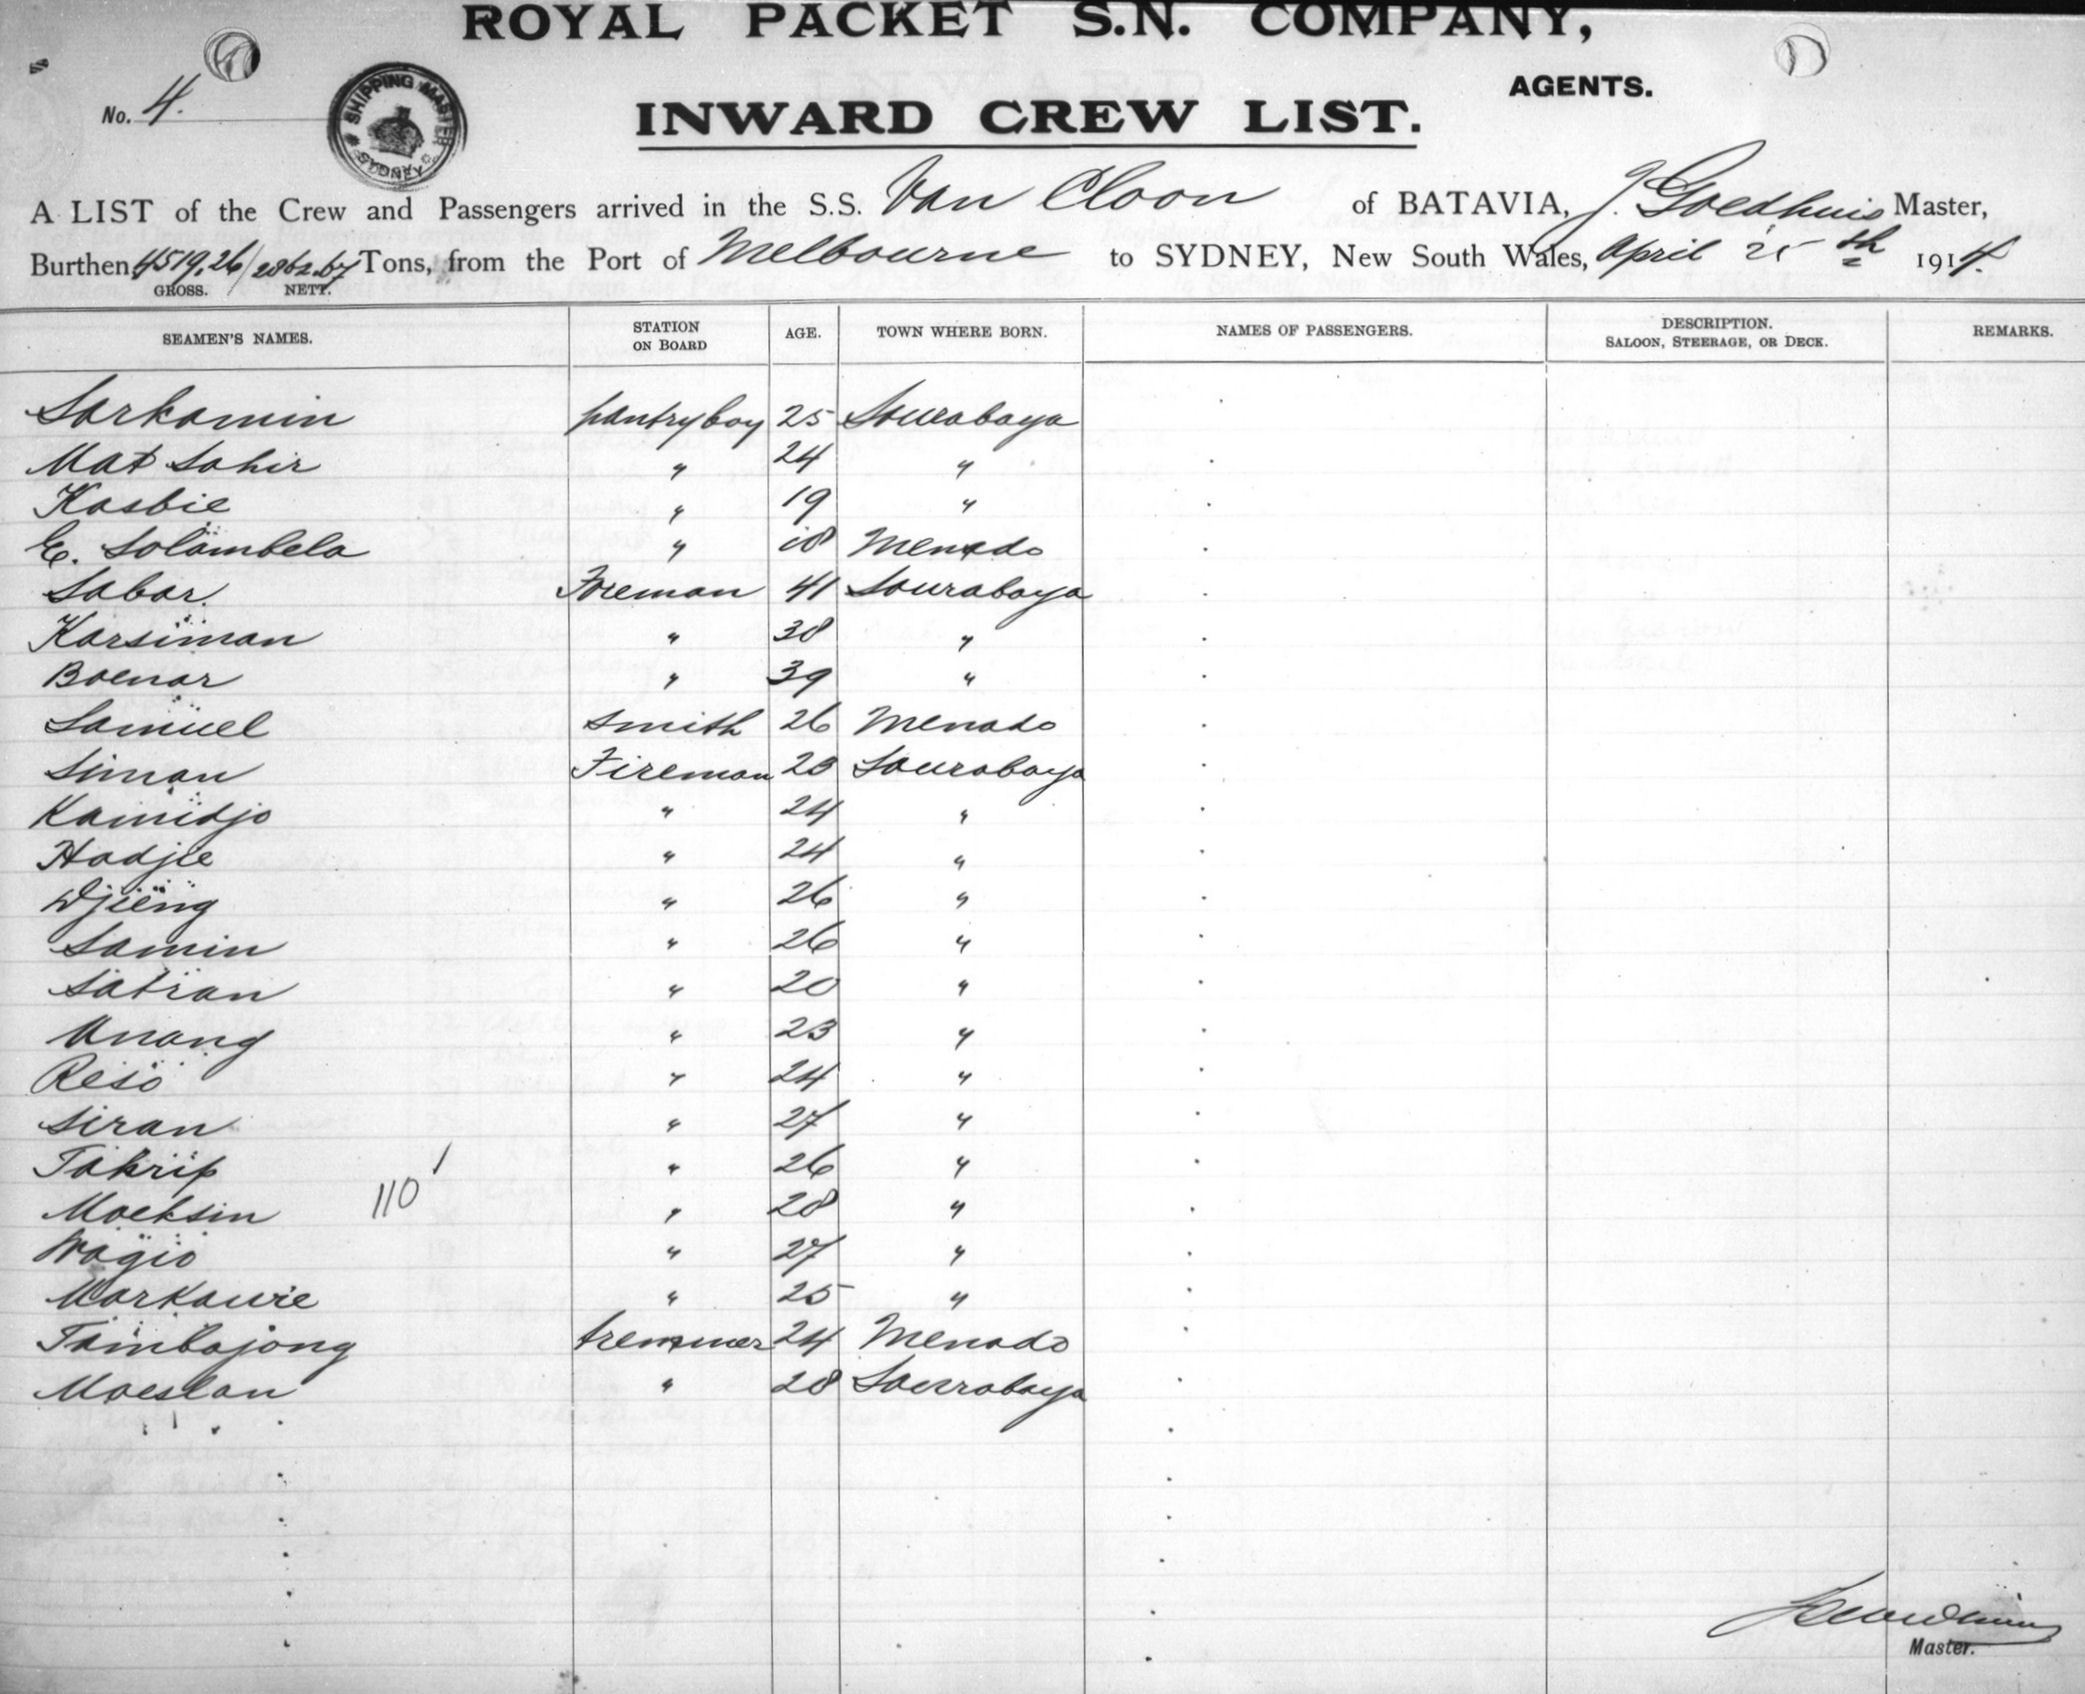 ROYAL PACKET S.N. COMPANY,
AGENTS.
No. 4.
SHIPPING MASTER SYDNEY
INWARD CREW LIST.
A LIST of the Crew and Passengers arrived in the S.S. Van Cloon of BATAVIA, J. Goedhuis Master,
Burthen 4519.26/2862.67 Tons, from the Port of Melbourne to SYDNEY, New South Wales, April 25th 1914.
GROSS. NETT.
SEAMEN'S NAMES. STATION ON BOARD AGE. TOWN WHERE BORN. NAMES OF PASSENGERS. DESCRIPTION. SALOON, STEERAGE, OR DECK. REMARKS.
Sarkamin pantryboy 25 Sourabaya
Mat Sahir " 24 "
Kasbie " 19 "
E. Solambela " 18 Menado
Sabar. Foreman 41 Sourabaya
Karsiman " 38 "
Boenar " 39 "
Samuel smith 26 Menado
Siman Fireman 23 Sourabaya
Kamidjo " 24 "
Hadjie " 24 "
Djieng " 26 "
Samin " 26 "
Satran " 20 "
Anang " 23 "
Reso " 24 "
Siran " 27 "
Takrip " 26 "
110
Moeksin " 28 "
Wagio " 27 "
Markawie " 25 "
Tambajong tremmer 24 Menado
Moeslan " 28 Sourabaya
Master.